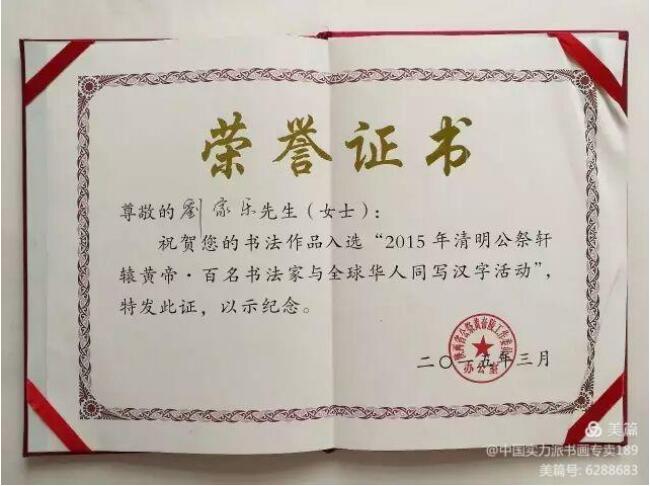 荣誉证书
尊敬的劉家乐先生（女士）：
祝贺您的书法作品入选“2015年清明公祭轩
辕黄帝·百名书法家与全球华人同写汉字活动”，
特发此证，以示纪念。
陕西省公祭黄帝陵工作委员会
办公室
二〇一五年三月
美篇
@中国实力派书画专卖189
美篇号: 6288683